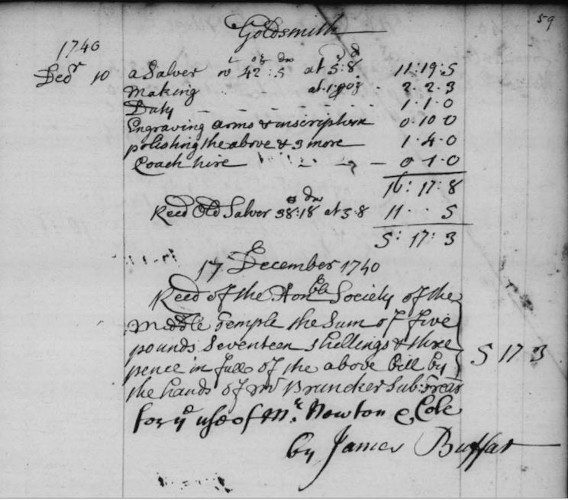 59
Goldsmith
1740
Decr 10 a Salver wt 42 oz : 5 dw at 5s : 8d 11 : 19 : 5
Making at 1s p oz 2 . 2 . 3
Duty 1 . 1 . 0
Engraving arms & inscription 0 . 10 . 0
polishing the above & 3 more 1 . 4 . 0
Coach hire 0 . 1 . 0
16 : 17 : 8
Recd Old Salver 38 oz : 18 dw at 5.8 11 . . 5
5 : 17 : 3
17 December 1740
Recd of the Honble Society of the
Middle Temple the Sum of five
pounds Seventeen shillings & three
pence in full of the above Bill by 5 17 3
the hands of Mr Brundier Sub: Trear
for ye use of Mr. Newton & Cole
by James Buffar